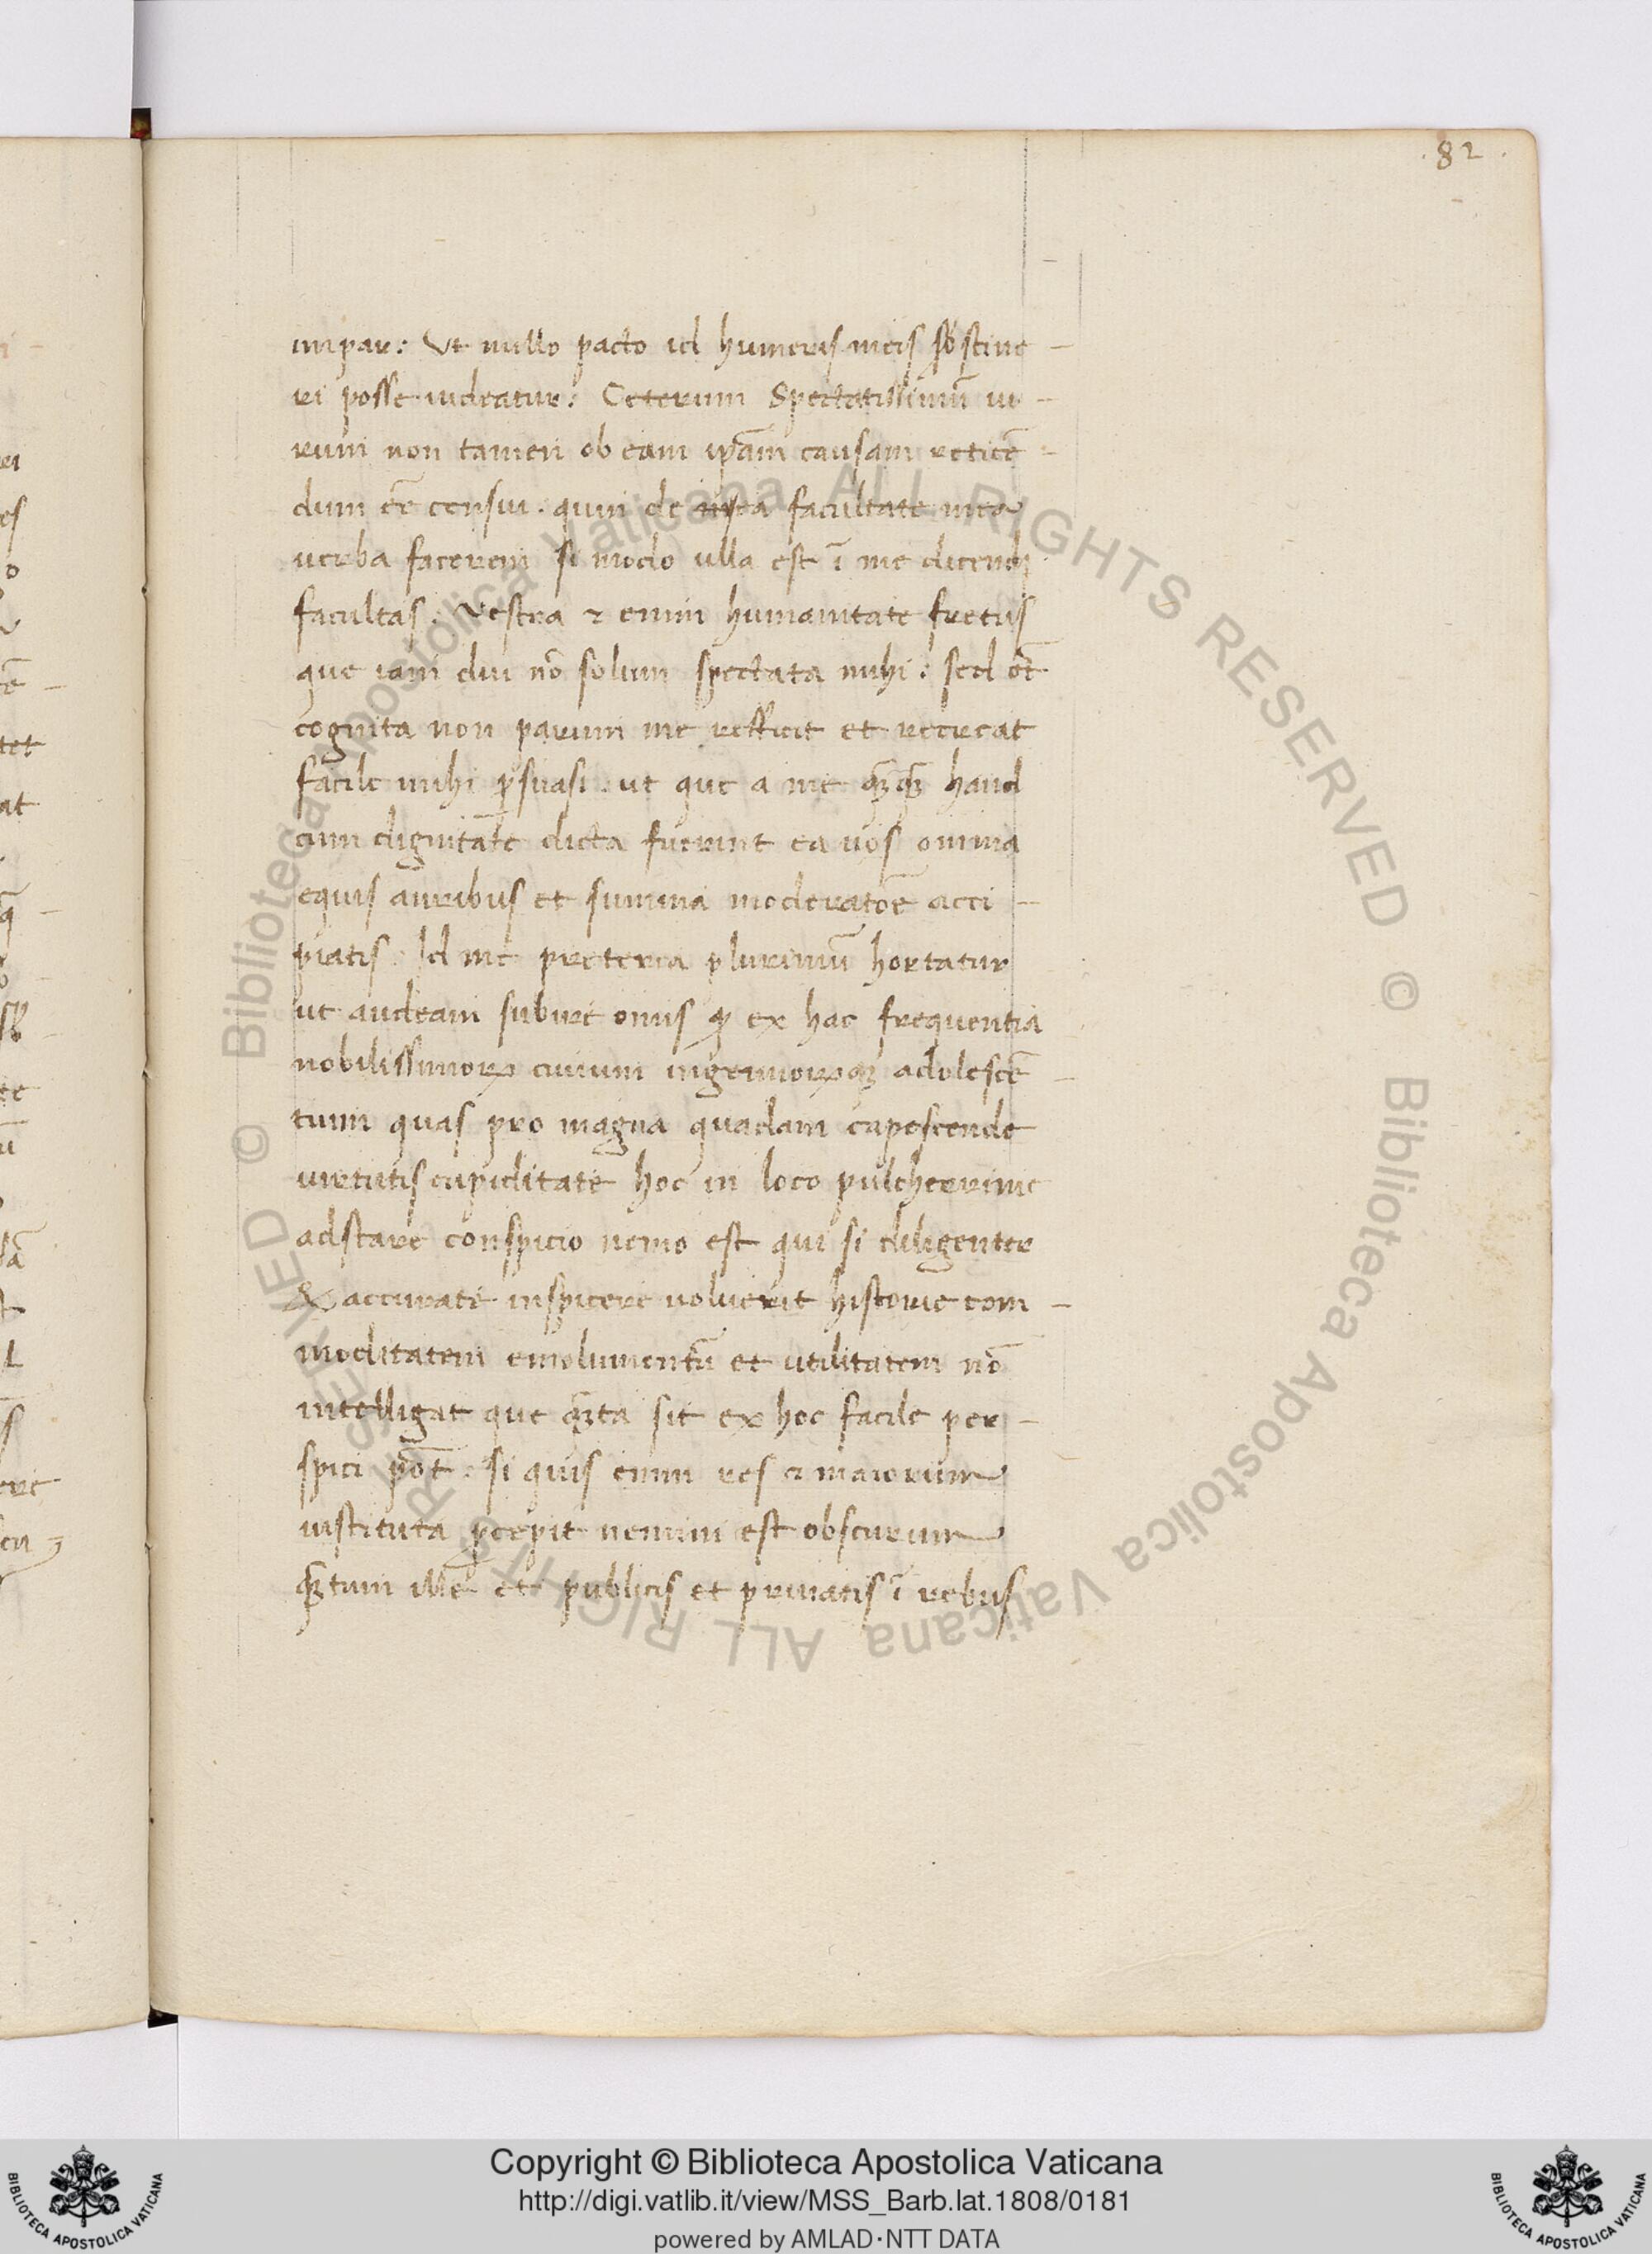 .82.
impar: Vt nullo pacto id humeris meis sustine-
ri posse uideatur: Ceterum Spectatissimū ui-
rum non tamen ob eam ip̄am causam reticē-
dum eē censui. quin de istea facultate mea
uerba facerem si modo ulla est ī me dicendi
facultas. Vestra & enim humanitate fretus
que iam diu nō solum spectata mihi: sed et̄
cognita non parum me refficit et recreat
facile mihi psuasi. ut que a me q̄zq̄z haud
cum dignitate dicta fuerint ea uos omnia
equis auribus et summa moderatōe acci-
piatis. Id me preterea plurimū hortatur
ut audeam subire onus q̄ ex hac frequentia
nobilissimoꝝ ciuium ingenuoꝝqz adolescē-
tum quas pro magna quadam capescende
uirtutis cupiditate hoc in loco pulcherrime
adstare conspicio nemo est qui si diligenter
& accurate inspicere uoluerit historie com-
moditatem emolumentū et utilitatem nō
intelligat que q̄zta sit ex hoc facile per-
spici pōt. si quis enim res & maiorum
instituta pcepit nemini est obscurum
q̄ztum ille et publicis et priuatis ī rebus
© Biblioteca Apostolica Vaticana ALL RIGHTS RESERVED © Biblioteca Apostolica Vaticana ALL RIGHTS RESERVED
Copyright © Biblioteca Apostolica Vaticana
http://digi.vatlib.it/view/MSS_Barb.lat.1808/0181
powered by AMLAD·NTT DATA
BIBLIOTECA APOSTOLICA VATICANA
BIBLIOTECA APOSTOLICA VATICANA